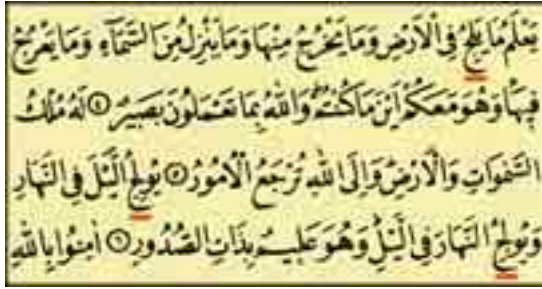 يَعْلَمُ مَا يَلِجُ فِي الْاَرْضِ وَمَا يَخْرُجُ مِنْهَا وَمَا يَنْزِلُ مِنَ السَّمَآءِ وَمَا يَعْرُجُ
فِيهَا وَهُوَ مَعَكُمْ اَيْنَ مَا كُنْتُمْ وَاللّٰهُ بِمَا تَعْمَلُونَ بَصِيرٌ ﴿٤﴾ لَهُ مُلْكُ
السَّمٰوَاتِ وَالْاَرْضِ وَاِلَى اللّٰهِ تُرْجَعُ الْاُمُورُ ﴿٥﴾ يُولِجُ الَّيْلَ فِي النَّهَارِ
وَيُولِجُ النَّهَارَ فِي الَّيْلِ وَهُوَ عَلِيمٌ بِذَاتِ الصُّدُورِ ﴿٦﴾ اٰمِنُوا بِاللّٰهِ